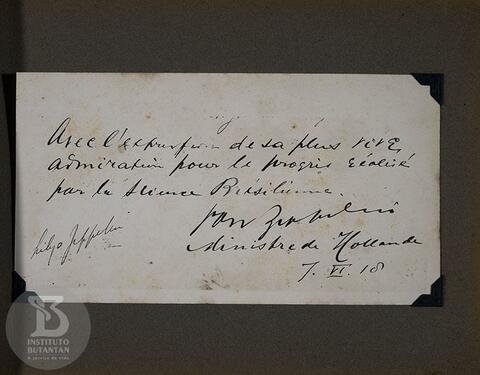 Avec l'expression de sa plus vive
admiration pour le progrès réalisé
par la Science Brésilienne.
von Zeppelin
Ministre de Hollande
7. VI. 18
Zeppelin
INSTITUTO
BUTANTAN
A serviço da vida